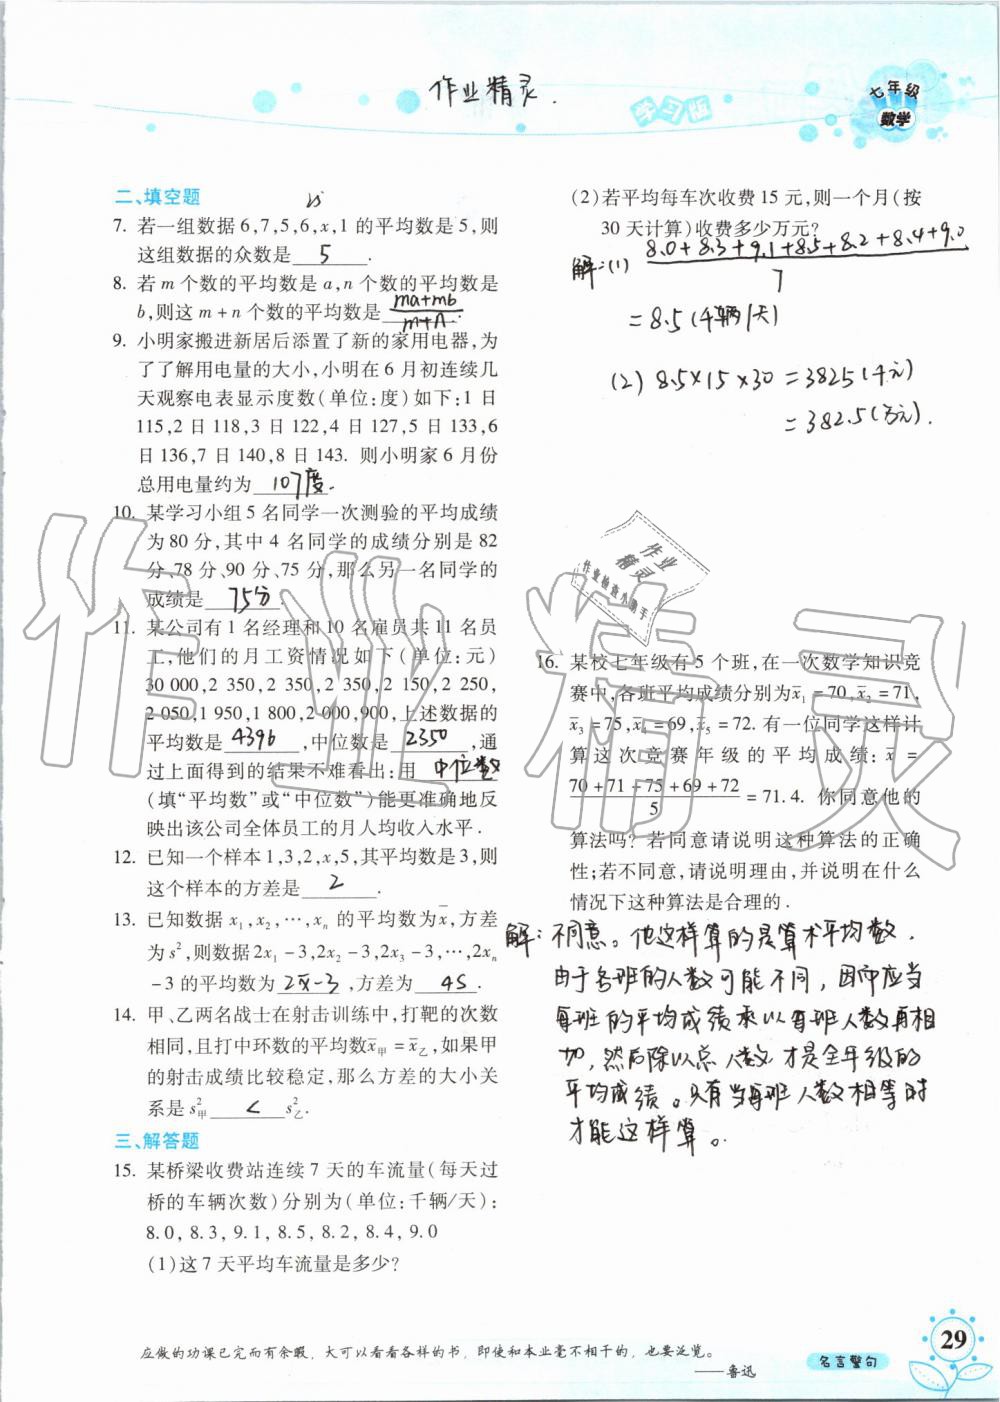 作业精灵.
学习版
七年级
数学
二、填空题
7. 若一组数据 6,7,5,6,x,1 的平均数是 5,则
这组数据的众数是 5 .
8. 若 m 个数的平均数是 a,n 个数的平均数是
b,则这 m + n 个数的平均数是 (ma+mb)/(m+n).
9. 小明家搬进新居后添置了新的家用电器,为
了了解用电量的大小,小明在 6 月初连续几
天观察电表显示度数(单位:度)如下:1 日
115,2 日 118,3 日 122,4 日 127,5 日 133,6
日 136,7 日 140,8 日 143. 则小明家 6 月份
总用电量约为 107度.
10. 某学习小组 5 名同学一次测验的平均成绩
为 80 分,其中 4 名同学的成绩分别是 82
分、78 分、90 分、75 分,那么另一名同学的
成绩是 75分.
11. 某公司有 1 名经理和 10 名雇员共 11 名员
工,他们的月工资情况如下(单位:元)
30 000,2 350,2 350,2 350,2 150,2 250,
2 050,1 950,1 800,2 000,900,上述数据的
平均数是 4396 ,中位数是 2350 ,通
过上面得到的结果不难看出:用 中位数
(填“平均数”或“中位数”)能更准确地反
映出该公司全体员工的月人均收入水平.
12. 已知一个样本 1,3,2,x,5,其平均数是 3,则
这个样本的方差是 2 .
13. 已知数据 x₁,x₂,…,xₙ 的平均数为x̄,方差
为 s²,则数据 2x₁ −3,2x₂ −3,2x₃ −3,…,2xₙ
−3 的平均数为 2x̄−3 ,方差为 4S .
14. 甲、乙两名战士在射击训练中,打靶的次数
相同,且打中环数的平均数x̄甲 = x̄乙,如果甲
的射击成绩比较稳定,那么方差的大小关
系是 s²甲 < s²乙.
三、解答题
15. 某桥梁收费站连续 7 天的车流量(每天过
桥的车辆次数)分别为(单位:千辆/天):
8.0, 8.3, 9.1, 8.5, 8.2, 8.4, 9.0
(1)这 7 天平均车流量是多少?
(2)若平均每车次收费 15 元,则一个月(按
30 天计算)收费多少万元?
解:(1) (8.0+8.3+9.1+8.5+8.2+8.4+9.0)/7
=8.5(千辆/天)
(2) 8.5×15×30=3825(千元)
=382.5(万元).
16. 某校七年级有 5 个班,在一次数学知识竞
赛中,各班平均成绩分别为x̄₁ =70,x̄₂ =71,
x̄₃ =75,x̄₄ =69,x̄₅ =72. 有一位同学这样计
算这次竞赛年级的平均成绩: x̄ =
(70+71+75+69+72)/5 =71.4. 你同意他的
算法吗? 若同意请说明这种算法的正确
性;若不同意,请说明理由,并说明在什么
情况下这种算法是合理的.
解:不同意。他这样算的是算术平均数,
由于各班的人数可能不同,因而应当
每班的平均成绩乘以每班人数再相
加,然后除以总人数才是全年级的
平均成绩。只有当每班人数相等时
才能这样算。
作业精灵
作业
精灵
作业检查小助手
应做的功课已完而有余暇,大可以看看各样的书,即使和本业毫不相干的,也要泛览。
——鲁迅
名言警句
29